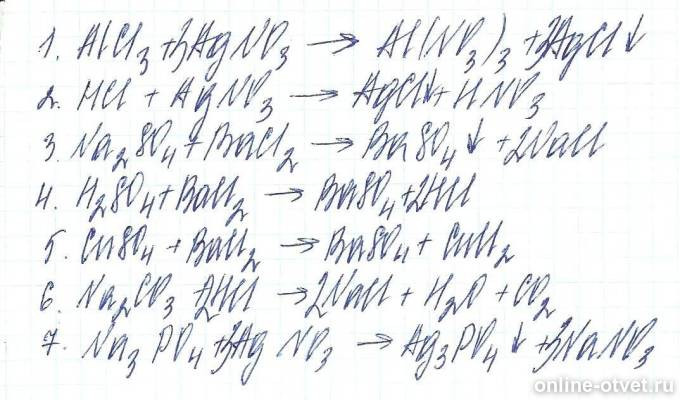 1. AlCl₃ + 3AgNO₃ → Al(NO₃)₃ + 3AgCl↓
2. HCl + AgNO₃ → AgCl↓ + HNO₃
3. Na₂SO₄ + BaCl₂ → BaSO₄↓ + 2NaCl
4. H₂SO₄ + BaCl₂ → BaSO₄ + 2HCl
5. CuSO₄ + BaCl₂ → BaSO₄ + CuCl₂
6. Na₂CO₃ + 2HCl → 2NaCl + H₂O + CO₂
7. Na₃PO₄ + 3AgNO₃ → Ag₃PO₄↓ + 3NaNO₃
online-otvet.ru